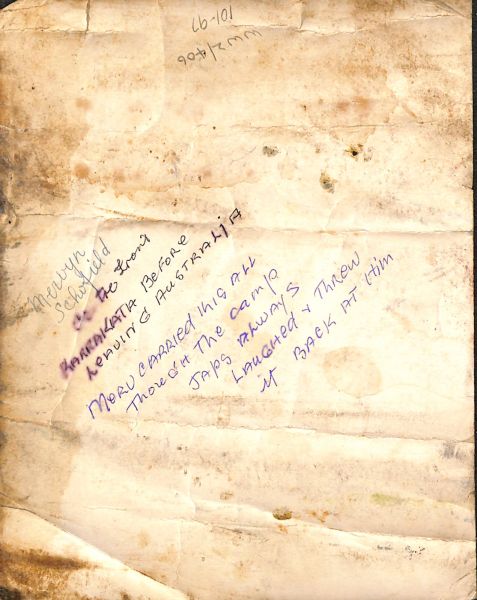 101-97
WWII/406
Melvyn
Schofield
in the front
KARRAKATA BEFORE
LEAVING AUSTRALIA
MERV CARRIED THIS ALL
THOUGH THE CAMP
JAPS ALWAYS
LAUGHED & THREW
it BACK AT Him